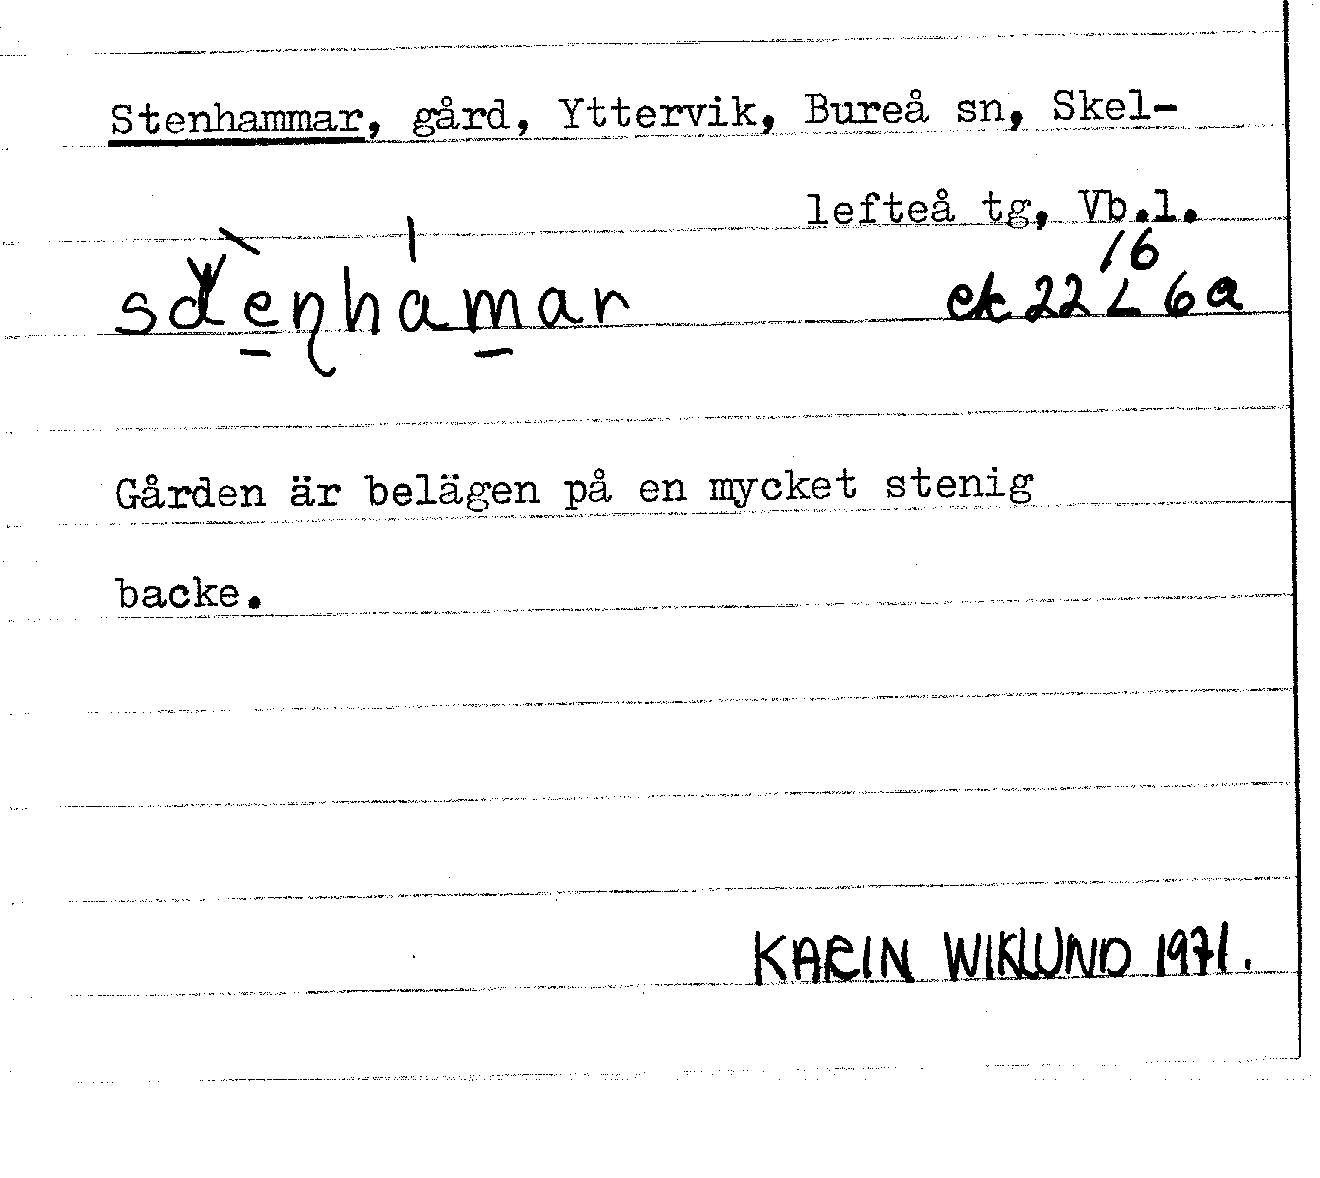 Stenhammar, gård, Yttervik, Bureå sn, Skel-
lefteå tg, Vb.l.
16
ek 22 L 6a
Gården är belägen på en mycket stenig
backe.
KARIN WIKLUND 1971.